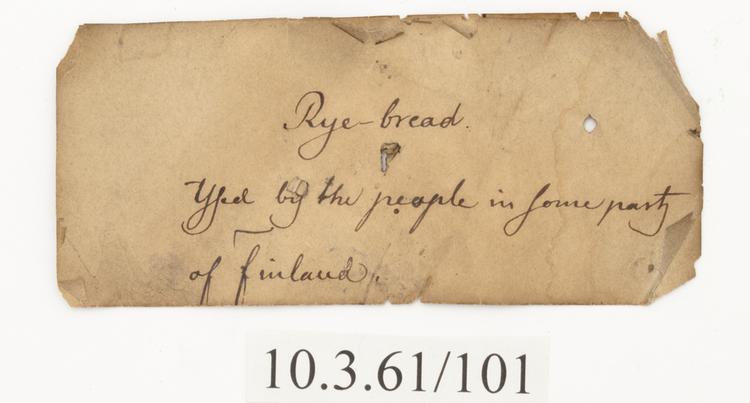 Rye-bread.
Used by the people in some party
of Finland.
10.3.61/101